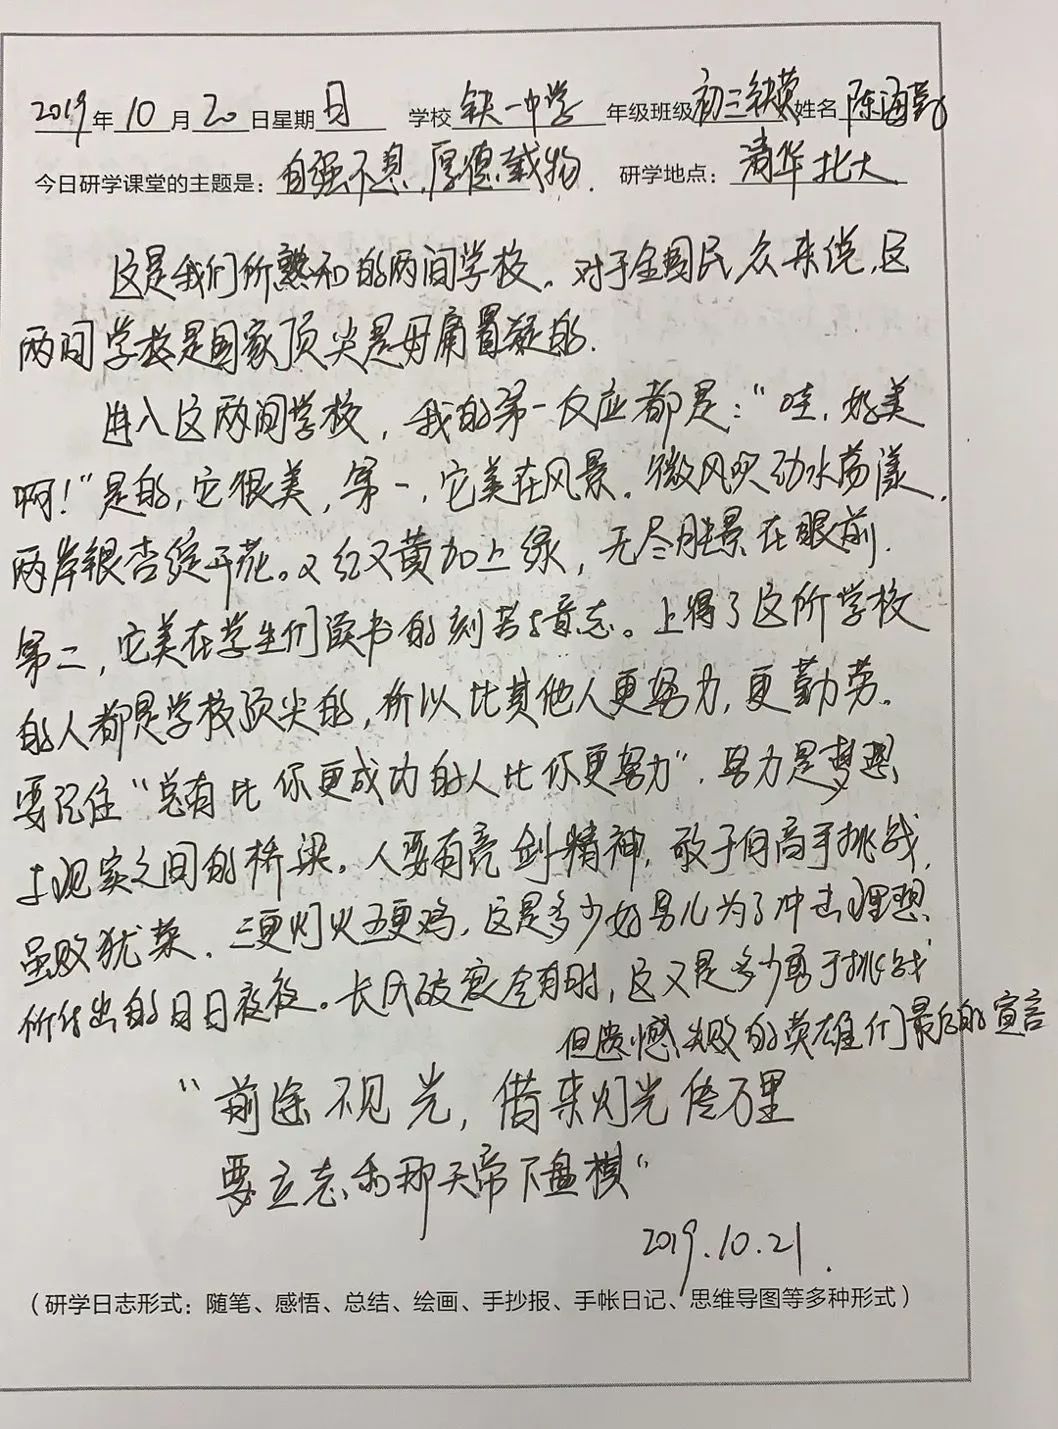 2019年10月20日星期日 学校铁一中学 年级班级初三铁英 姓名陈海
今日研学课堂的主题是：自强不息，厚德载物. 研学地点：清华北大
这是我们所熟知的两间学校。对于全国民众来说，这
两间学校是国家顶尖是毋庸置疑的.
进入这两间学校，我的第一反应都是：“哇，好美
啊！”是的，它很美，第一，它美在风景。微风吹动水荡漾，
两岸银杏绽开花。又红又黄加上绿，无尽胜景在眼前.
第二，它美在学生们读书的刻苦与意志。上得了这所学校
的人都是学校顶尖的，所以比其他人更努力，更勤劳。
要记住“总有比你更成功的人比你更努力”，努力是梦想
与现实之间的桥梁。人要有亮剑精神，敢于向高手挑战，
虽败犹荣，三更灯火五更鸡，这是多少好男儿为了冲击理想
所付出的日日夜夜。长风破浪会有时，这又是多少勇于挑战
但遗憾失败的英雄们最后的宣言
“前途不见光，借来灯光传万里
要立志和那天帝下盘棋”
2019.10.21.
（研学日志形式：随笔、感悟、总结、绘画、手抄报、手帐日记、思维导图等多种形式）